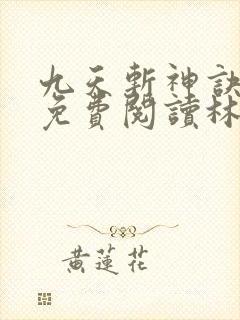 九天斬神訣
免費閱讀林
黃蓮花